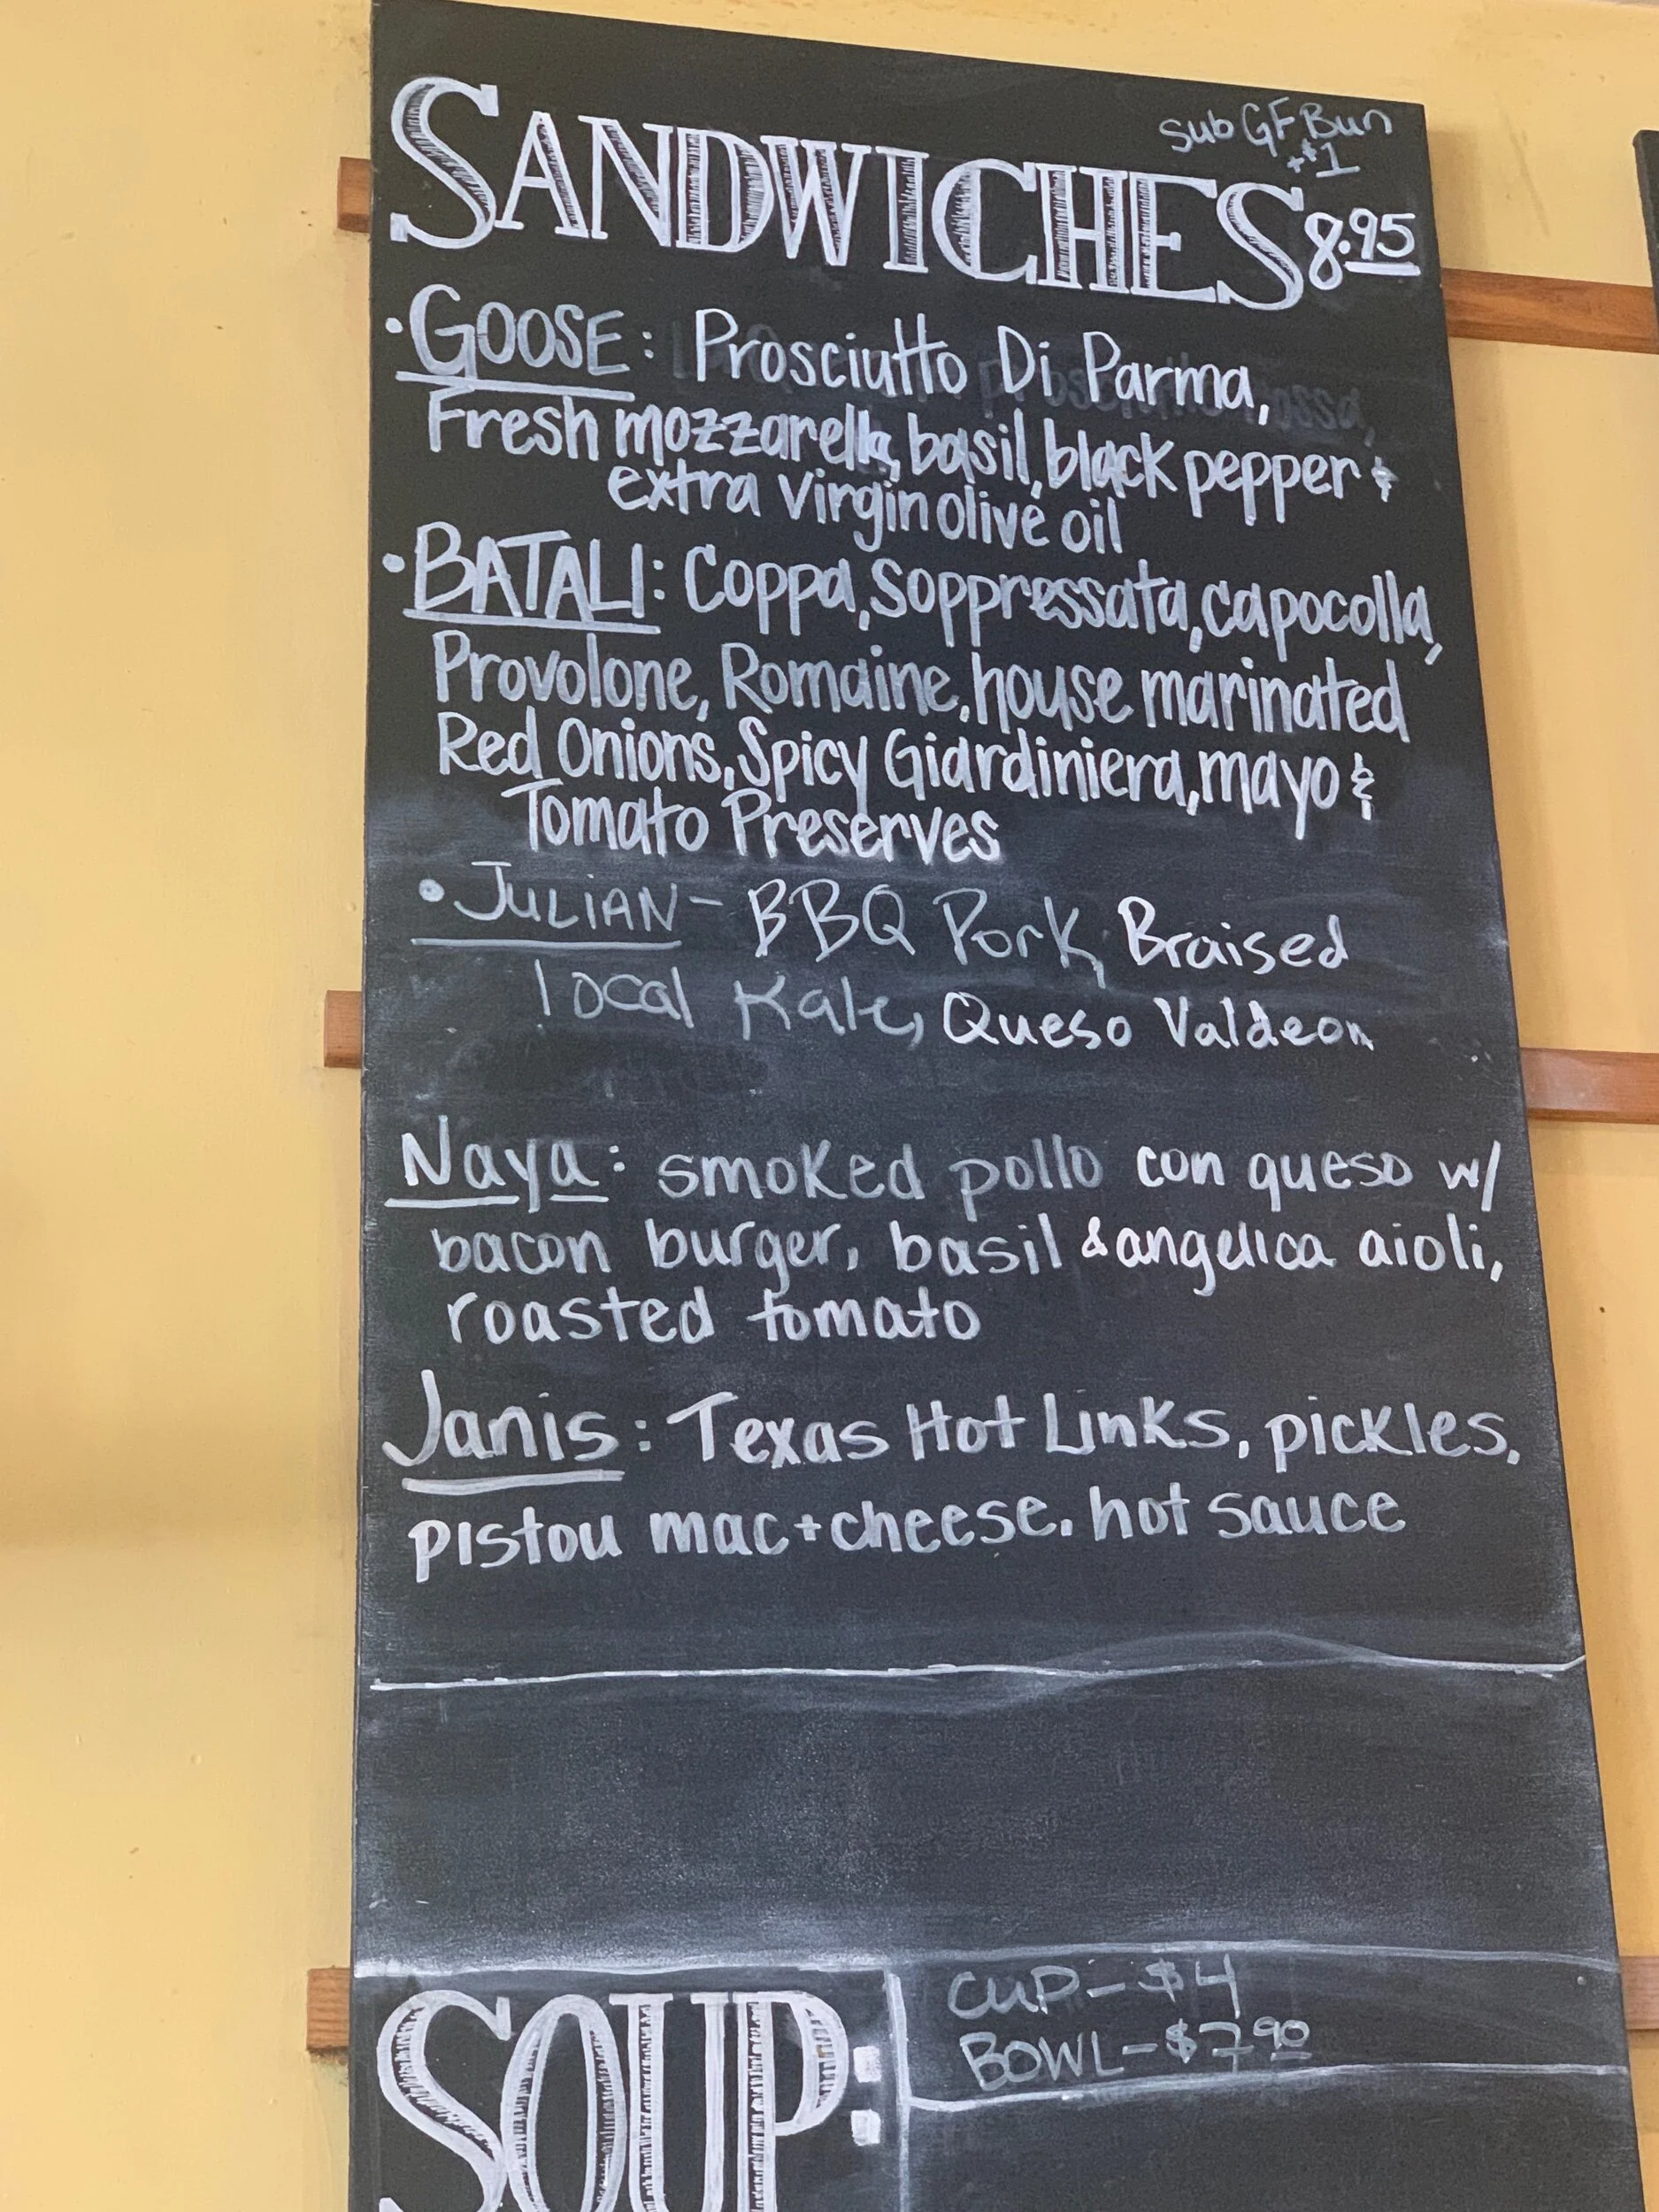 Sub GF Bun
+$1
SANDWICHES 8.95
• GOOSE: Prosciutto Di Parma,
Fresh mozzarella, basil, black pepper &
extra virgin olive oil
• BATALI: Coppa, Soppressata, capocolla,
Provolone, Romaine, house marinated
Red Onions, Spicy Giardiniera, mayo &
Tomato Preserves
• JULIAN - BBQ Pork, Braised
local Kale, Queso Valdeon
Naya: smoked pollo con queso w/
bacon burger, basil & angelica aioli,
roasted tomato
Janis: Texas Hot Links, pickles,
pistou mac+cheese. hot sauce
SOUP:
CUP - $4
BOWL - $7.90